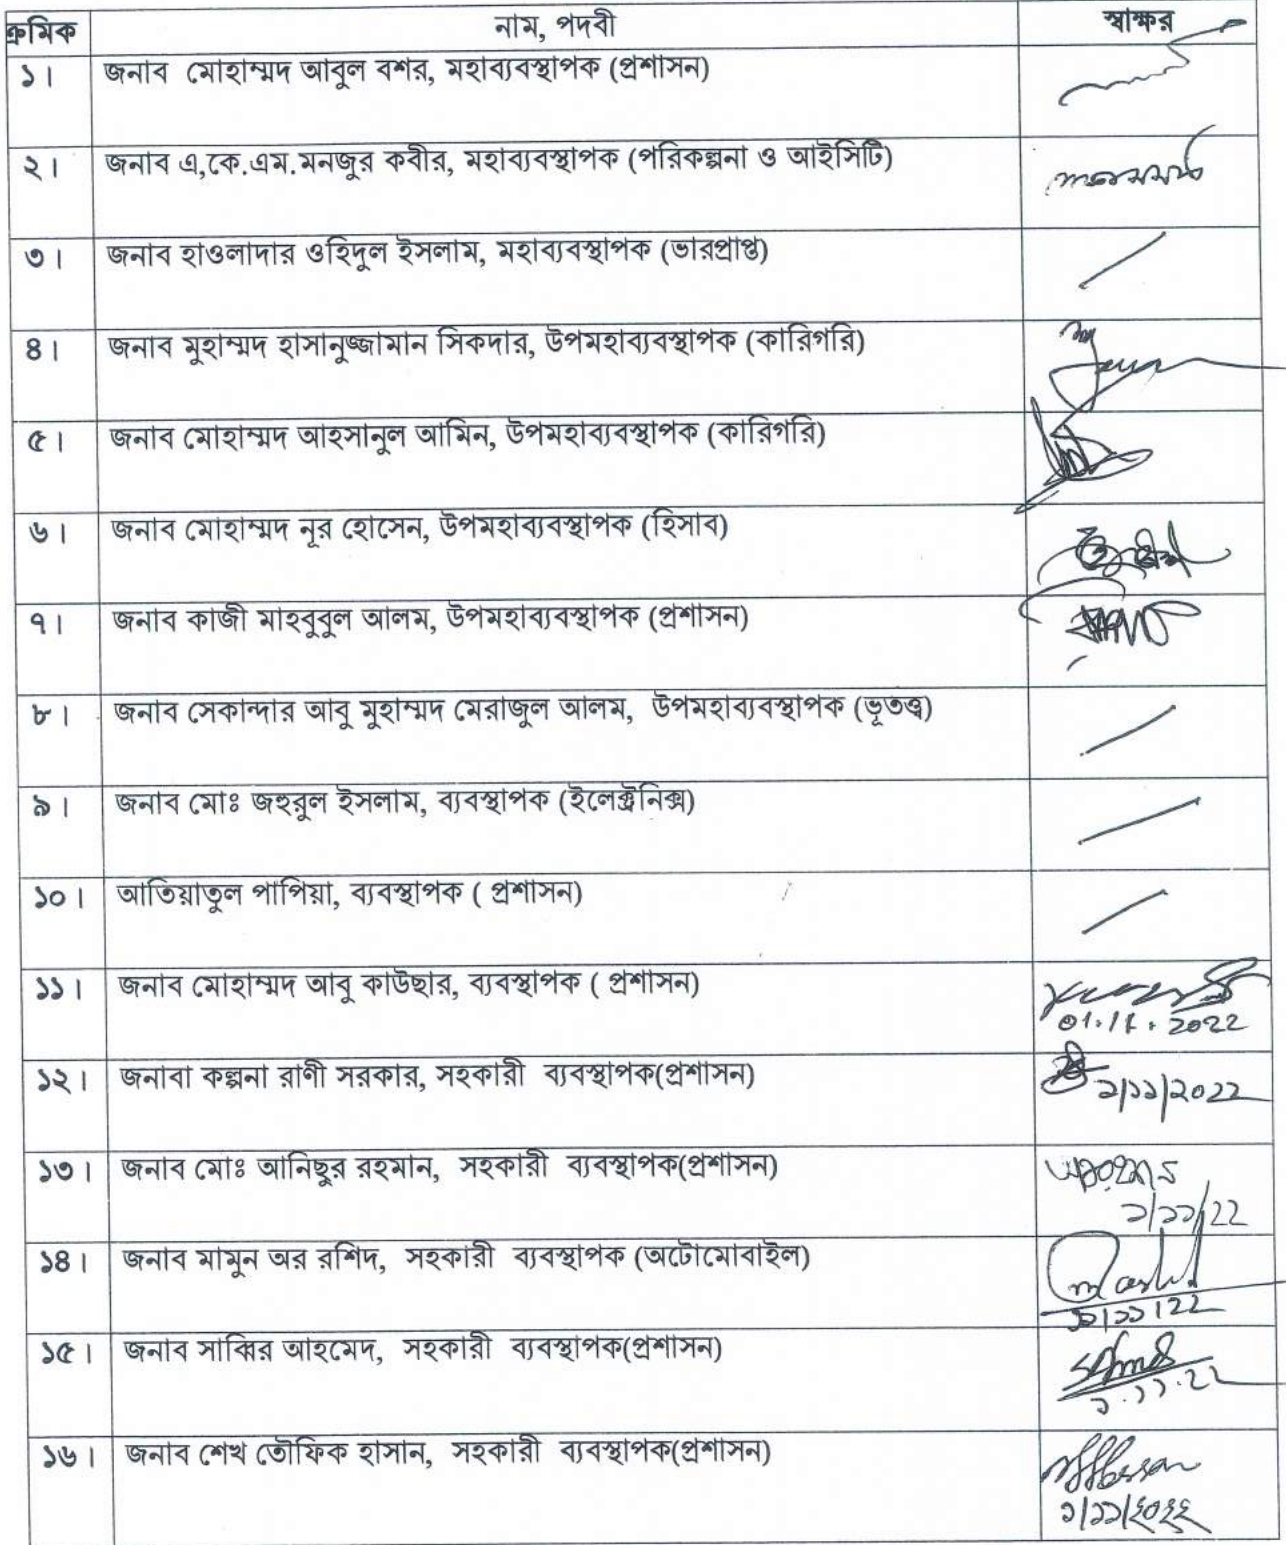 ক্রমিক নাম, পদবী স্বাক্ষর
১। জনাব মোহাম্মদ আবুল বশর, মহাব্যবস্থাপক (প্রশাসন)
২। জনাব এ,কে.এম.মনজুর কবীর, মহাব্যবস্থাপক (পরিকল্পনা ও আইসিটি)
৩। জনাব হাওলাদার ওহিদুল ইসলাম, মহাব্যবস্থাপক (ভারপ্রাপ্ত)
৪। জনাব মুহাম্মদ হাসানুজ্জামান সিকদার, উপমহাব্যবস্থাপক (কারিগরি)
৫। জনাব মোহাম্মদ আহসানুল আমিন, উপমহাব্যবস্থাপক (কারিগরি)
৬। জনাব মোহাম্মদ নূর হোসেন, উপমহাব্যবস্থাপক (হিসাব)
৭। জনাব কাজী মাহবুবুল আলম, উপমহাব্যবস্থাপক (প্রশাসন)
৮। জনাব সেকান্দার আবু মুহাম্মদ মেরাজুল আলম, উপমহাব্যবস্থাপক (ভূতত্ত্ব)
৯। জনাব মোঃ জহুরুল ইসলাম, ব্যবস্থাপক (ইলেক্ট্রনিক্স)
১০। আতিয়াতুল পাপিয়া, ব্যবস্থাপক ( প্রশাসন)
১১। জনাব মোহাম্মদ আবু কাউছার, ব্যবস্থাপক ( প্রশাসন)
01.11.2022
১২। জনাবা কল্পনা রাণী সরকার, সহকারী ব্যবস্থাপক(প্রশাসন)
১/১১/২০22
১৩। জনাব মোঃ আনিছুর রহমান, সহকারী ব্যবস্থাপক(প্রশাসন)
১/১১/22
১৪। জনাব মামুন অর রশিদ, সহকারী ব্যবস্থাপক (অটোমোবাইল)
১৫। জনাব সাব্বির আহমেদ, সহকারী ব্যবস্থাপক(প্রশাসন)
১.১১.২২
১৬। জনাব শেখ তৌফিক হাসান, সহকারী ব্যবস্থাপক(প্রশাসন)
১/১১/২০২২